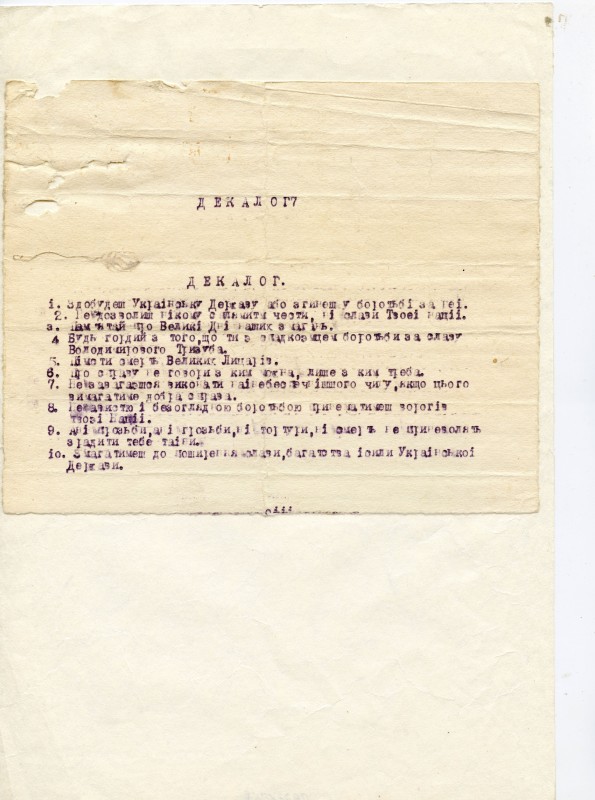 ДЕКАЛОГ7
ДЕКАЛОГ.
1. Здобудеш Українську Державу або згинеш у боротьбі за неї.
2. Не дозволиш нікому плямити чести, ні слави Твоеі нації.
3. Памятай про Великі Дні наших змагань.
4 Будь гордий з того,що ти є спадкоємцем боротьби за славу
Володимирового Тризуба.
5. Пімсти смерть Великих Лицарів.
6. Про справу не говори з ким можна, лише з ким треба.
7. Не завагаєшся виконати найнебезпечнішого чину,якщо цього
вимагатиме добра справа.
8. Ненавистю і безоглядною боротьбою прийматимеш ворогів
Твоєї Нації.
9. Ані прозьби,ані грозьби,ні тортури,ні смерть не приневолять
зрадити тебе тайни.
10. Змагатимеш до поширення слави,багатства і сили Української
Держави.